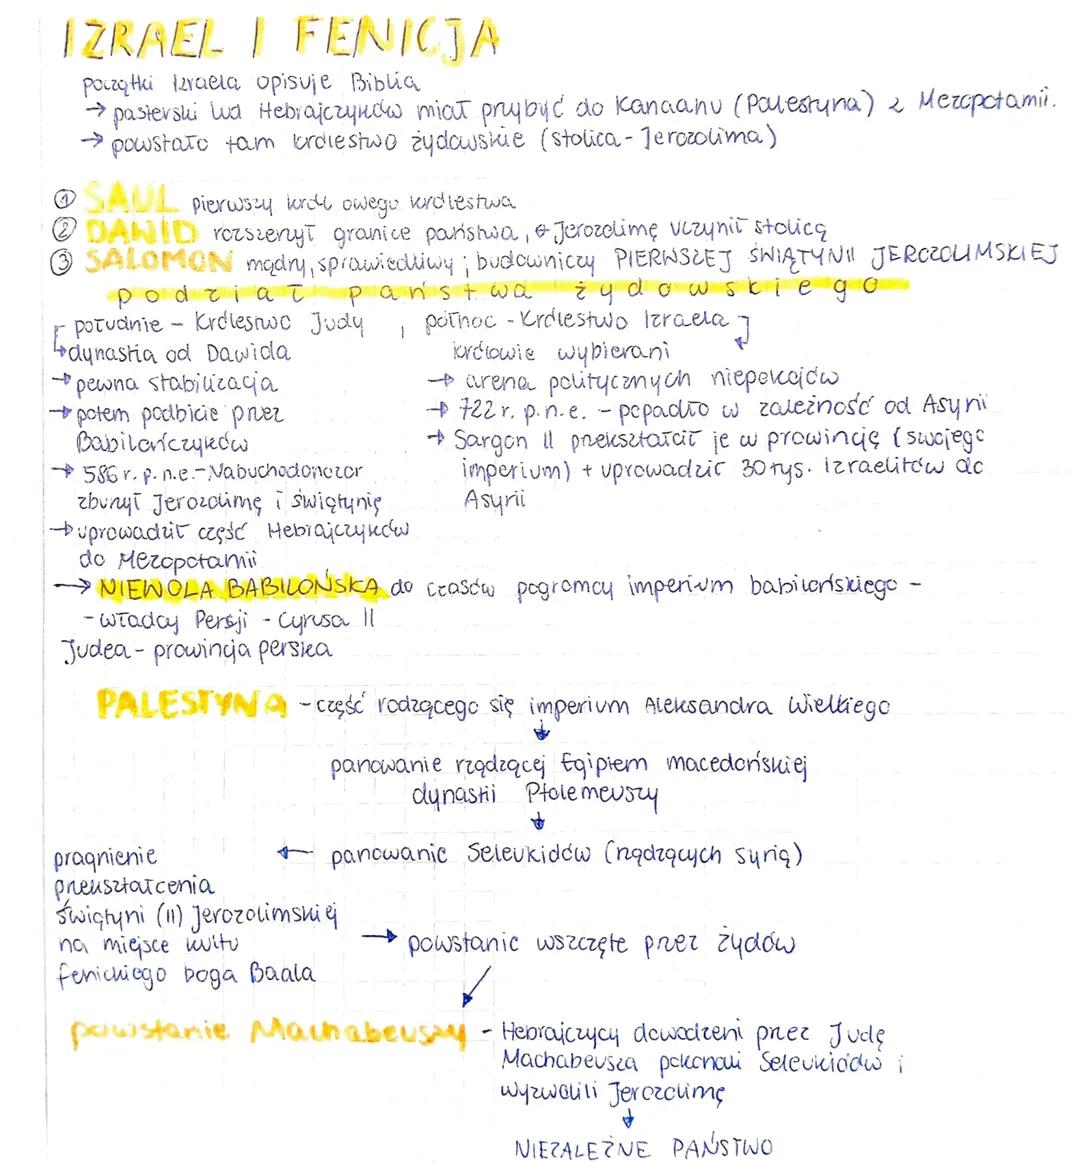 IZRAEL I FENICJA
początki Izraela opisuje Biblia
→ pasterski lud Hebrajczyków miał przybyć do Kanaanu (Palestyna) z Mezopotamii.
→ powstało tam królestwo żydowskie (stolica - Jerozolima)
① SAUL pierwszy król owego królestwa
② DAWID rozszerzył granice państwa, Jerozolimę uczynił stolicą
③ SALOMON mądry, sprawiedliwy; budowniczy PIERWSZEJ ŚWIĄTYNII JEROZOLIMSKIEJ
podział państwa żydowskiego
południe - Królestwo Judy
↳ dynastia od Dawida
→ pewna stabilizacja
→ potem podbicie przez
Babilończyków
→ 586 r. p.n.e. - Nabuchodonozor
zburzył Jerozolimę i świątynię
→ uprowadził część Hebrajczyków
do Mezopotamii
, północ - Królestwo Izraela
królowie wybierani
→ arena politycznych niepokojów
→ 722 r. p.n.e. - popadło w zależność od Asyrii
→ Sargon II przekształcił je w prowincję (swojego
imperium) + uprowadził 30 tys. Izraelitów do
Asyrii
→ NIEWOLA BABILOŃSKA do czasów pogromcy imperium babilońskiego -
- władcy Persji - Cyrusa II
Judea - prowincja perska
PALESTYNA - część rodzącego się imperium Aleksandra Wielkiego
↓
panowanie rządzącej Egiptem macedońskiej
dynastii Ptolemeuszy
↓
← panowanie Seleukidów (rządzących Syrią)
pragnienie
przekształcenia
świątyni (II) Jerozolimskiej
na miejsce kultu
fenickiego boga Baala
→ powstanie wszczęte przez żydów
powstanie Machabeuszy - Hebrajczycy dowodzeni przez Judę
Machabeusza pokonali Seleukidów i
wyzwolili Jerozolimę
↓
NIEZALEŻNE PAŃSTWO